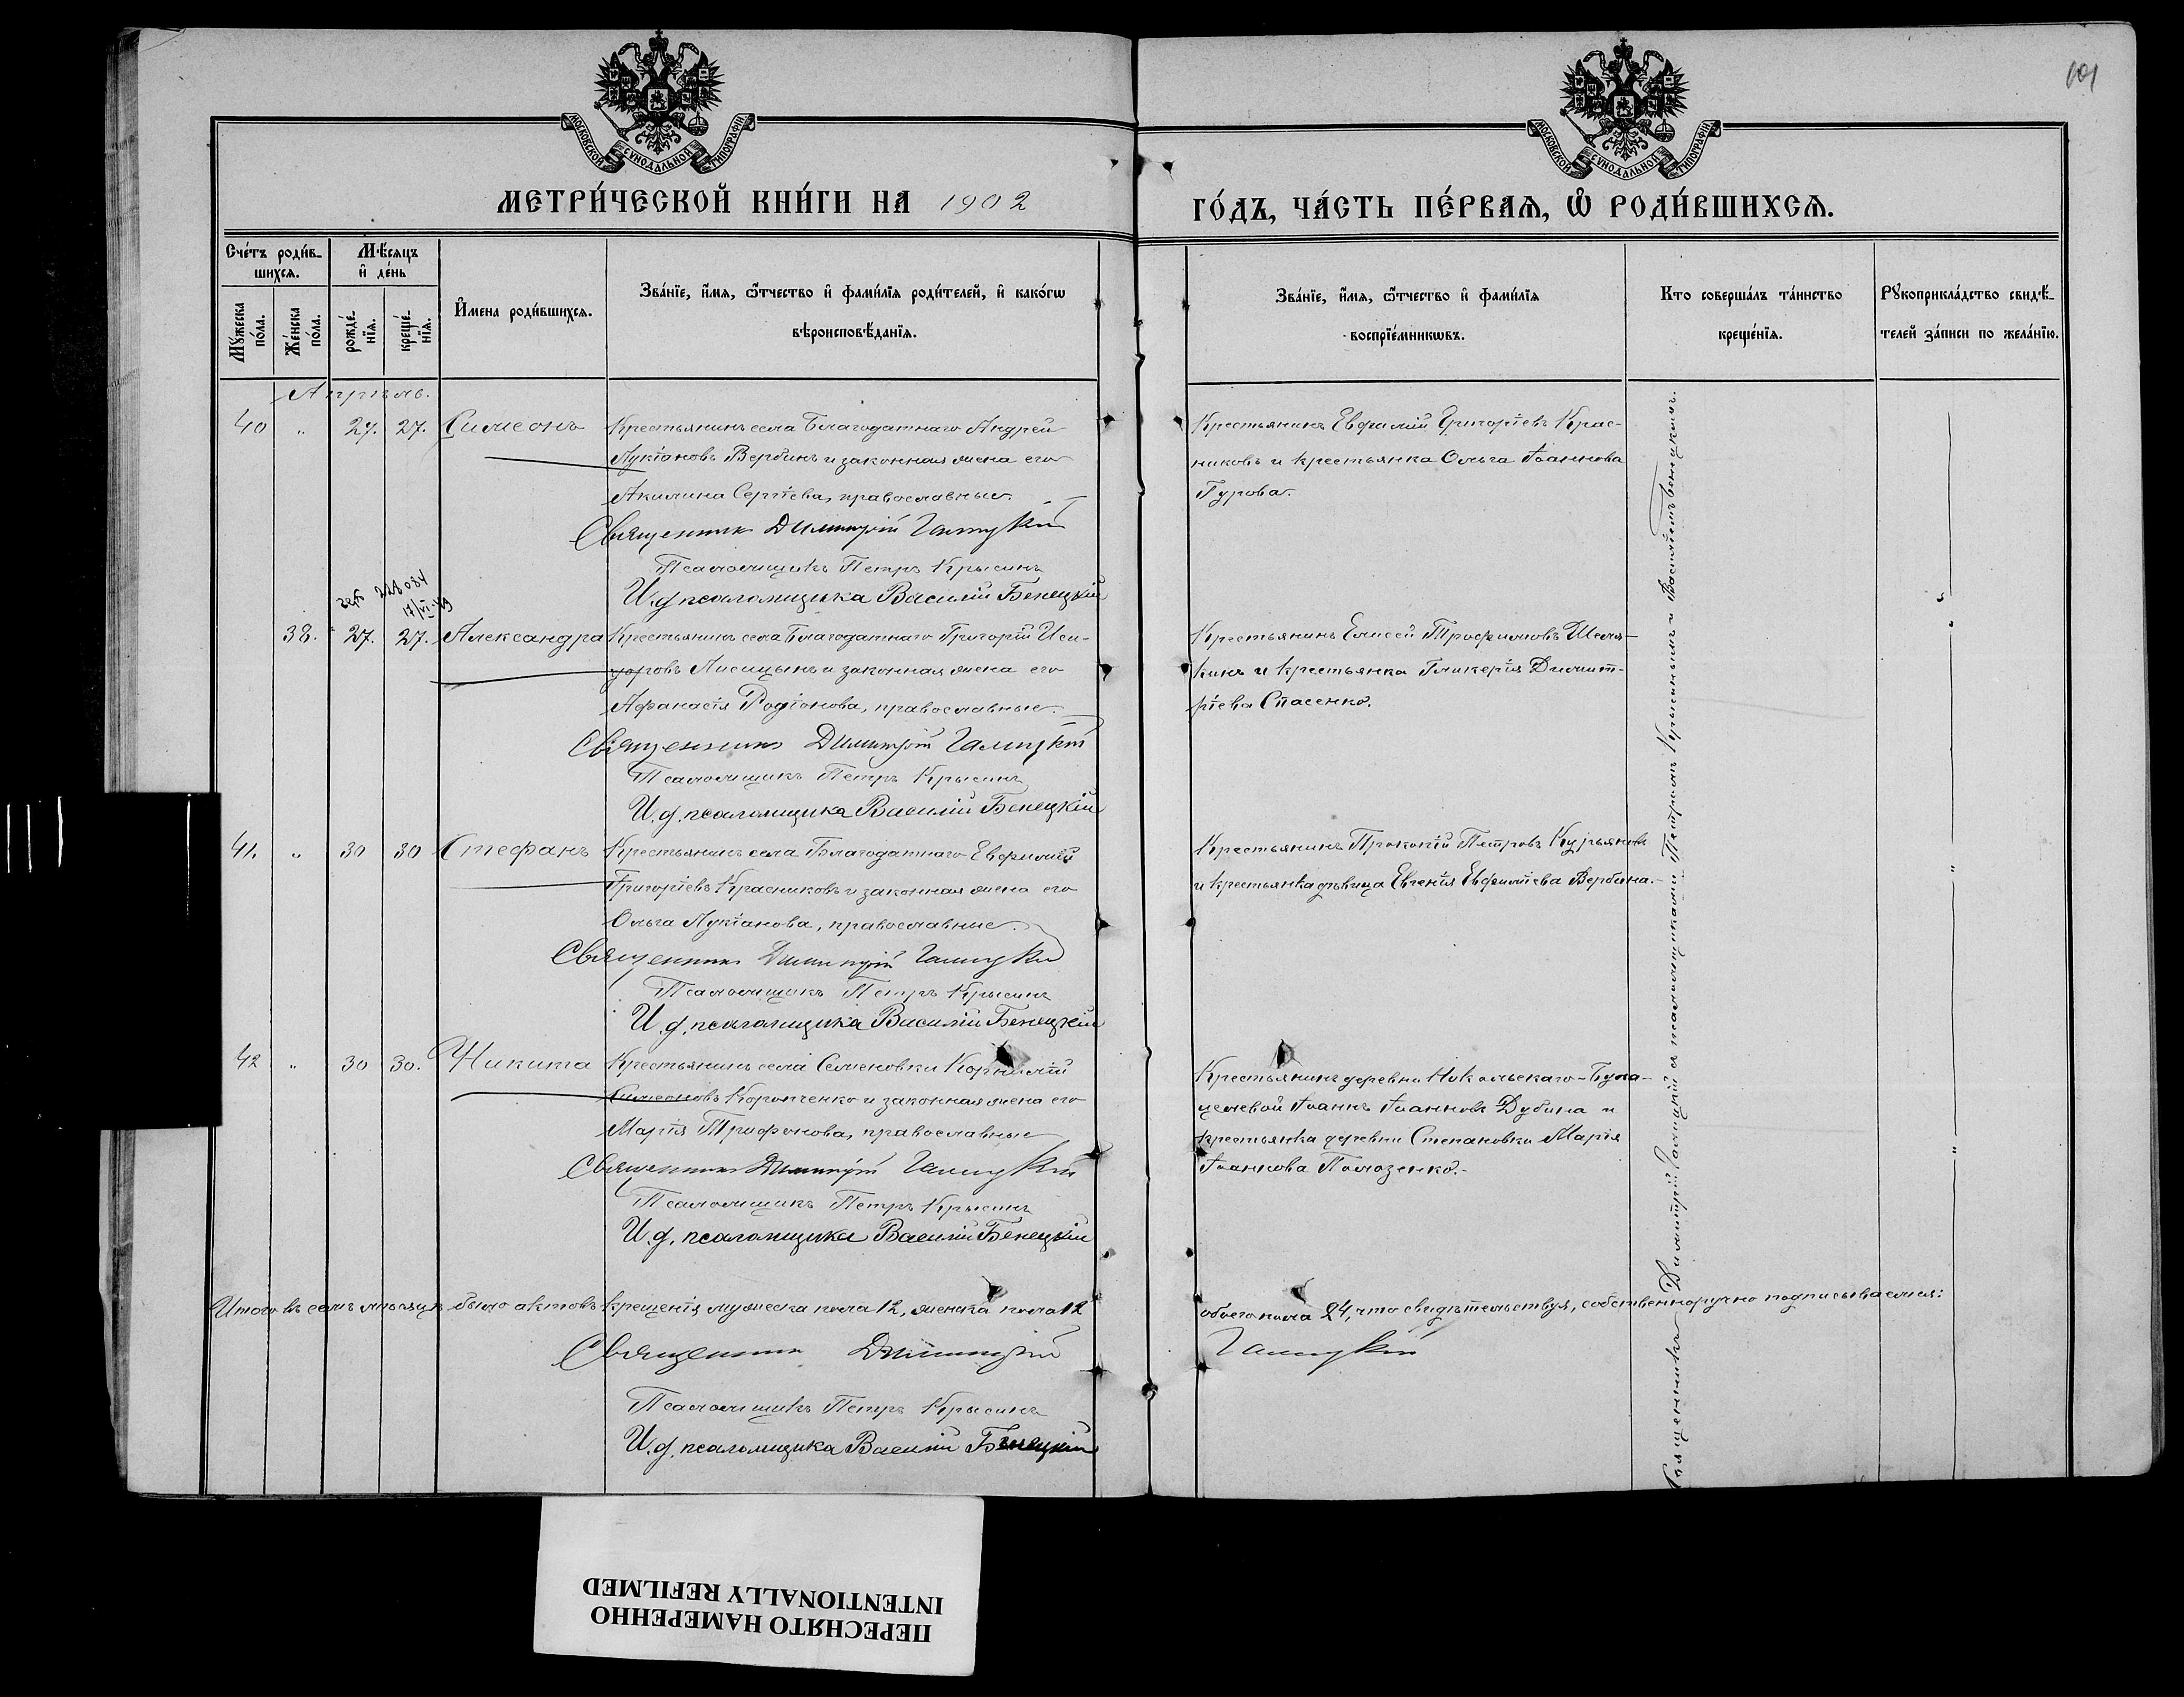 101
МОСКОВСКОЙ СѴНОДАЛЬНОЙ ТИПОГРАФІИ
МОСКОВСКОЙ СѴНОДАЛЬНОЙ ТИПОГРАФІИ
МЕТРИ́ЧЕСКОЙ КНИ́ГИ НА 1902
ГО́ДЪ, ЧА́СТЬ ПЕ́РВАЯ, Ѡ҆ РОДИ́ВШИХСЯ.
Сче́тъ роди́в-
шихся.
Мѣ́сяцъ
и҆ де́нь
Мꙋ́жеска
по́ла.
Же́нска
по́ла.
рожде́-
нїя.
креще́-
нїя.
И҆мена роди́вшихся.
Зва́нїе, и҆́мя, ѻ҆́тчество и҆ фами́лїя роди́телей, и҆ како́гѡ
вѣроисповѣ́данїя.
Зва́нїе, и҆́мя, ѻ҆́тчество и҆ фами́лїя
воспрїе́мникѡвъ.
Кто соверша́лъ та́инство
креще́нїя.
Рꙋкоприкла́дство свидѣ́-
телей за́писи по жела́нїю.
Апрѣль.
40 " 27. 27. Симеонъ
Крестьянинъ села Благодатнаго Андрей
Лукіановъ Вербинъ и законная жена его
Акилина Сергіева, православные.
Священник Димитрій Галицкій
Псаломщикъ Петръ Крысинъ
И. д. псаломщика Василій Бенецкій
Крестьянинъ Евфимій Григоріевъ Крас-
никовъ и крестьянка Ольга Іоаннова
Гурова.
228034
17/VI-49
38. 27. 27. Александра
Крестьянинъ села Благодатнаго Григорій Иси-
доровъ Лисицынъ и законная жена его
Афанасія Родіонова, православные.
Священникъ Димитрій Галицкій
Псаломщикъ Петръ Крысинъ
И. д. псаломщика Василій Бенецкій
Крестьянинъ Елисей Трофимовъ Шеля-
кинъ и крестьянка Гликерія Димит-
ріева Спасенко.
41. " 30 30 Стефанъ
Крестьянинъ села Благодатнаго Евфимій
Григоріевъ Красниковъ и законная жена его
Ольга Лукіанова, православные.
Священникъ Димитрій Галицкій
Псаломщикъ Петръ Крысинъ
И. д. псаломщика Василій Бенецкій
Крестьянинъ Прокопій Петровъ Курьяновъ
и крестьянка дѣвица Евгенія Евфиміева Вербина.
42 " 30 30. Никита
Крестьянинъ села Семеновки Корнилій
Симеоновъ Коропченко и законная жена его
Марія Трифонова, православные
Священникъ Димитрій Галицкій
Псаломщикъ Петръ Крысинъ
И. д. псаломщика Василій Бенецкій
Крестьянинъ деревни Никольскаго-Була-
целевой Іоаннъ Іоанновъ Дубина и
крестьянка деревни Степановки Марія
Іоаннова Полозенко.
Священникъ Димитрій Галицкій и псаломщиками Петромъ Крысинымъ и Василіемъ Бенецкимъ.
Итого въ семъ мѣсяцѣ было актовъ крещенія мужеска пола 12, женска пола 12
обоего пола 24, что свидѣтельствуя, собственноручно подписываемся:
Священникъ Димитрій Галицкій
Псаломщикъ Петръ Крысинъ
И. д. псаломщика Василій Бенецкій
ПЕРЕСНЯТО НАМЕРЕННО
INTENTIONALLY REFILMED